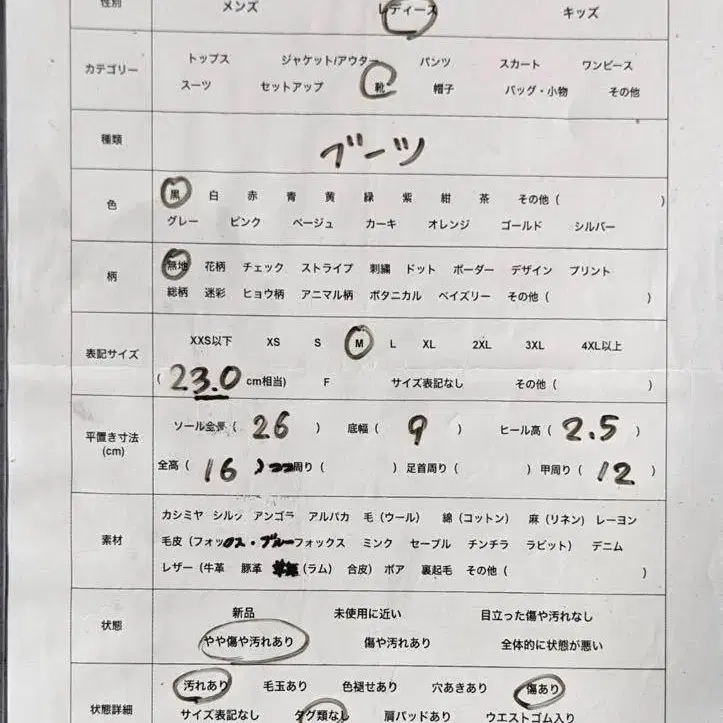 性別 メンズ レディース キッズ
カテゴリー
トップス ジャケット/アウター パンツ スカート ワンピース
スーツ セットアップ 靴 帽子 バッグ・小物 その他
種類 ブーツ
色
黒 白 赤 青 黄 緑 紫 紺 茶 その他 ( )
グレー ピンク ベージュ カーキ オレンジ ゴールド シルバー
柄
無地 花柄 チェック ストライプ 刺繍 ドット ボーダー デザイン プリント
総柄 迷彩 ヒョウ柄 アニマル柄 ボタニカル ペイズリー その他 ( )
表記サイズ
XXS以下 XS S M L XL 2XL 3XL 4XL以上
( 23.0 cm相当) F サイズ表記なし その他 ( )
平置き寸法
(cm)
ソール全長 ( 26 ) 底幅 ( 9 ) ヒール高 ( 2.5 )
全高 ( 16 ) 周り ( ) 足首周り ( ) 甲周り ( 12 )
素材
カシミヤ シルク アンゴラ アルパカ 毛 (ウール) 綿 (コットン) 麻 (リネン) レーヨン
毛皮 (フォックス・ブルーフォックス ミンク セーブル チンチラ ラビット) デニム
レザー (牛革 豚革 (ラム) 合皮) ボア 裏起毛 その他 ( )
状態
新品 未使用に近い 目立った傷や汚れなし
やや傷や汚れあり 傷や汚れあり 全体的に状態が悪い
状態詳細
汚れあり 毛玉あり 色褪せあり 穴あきあり 傷あり
サイズ表記なし タグ類なし 肩パッドあり ウエストゴム入り